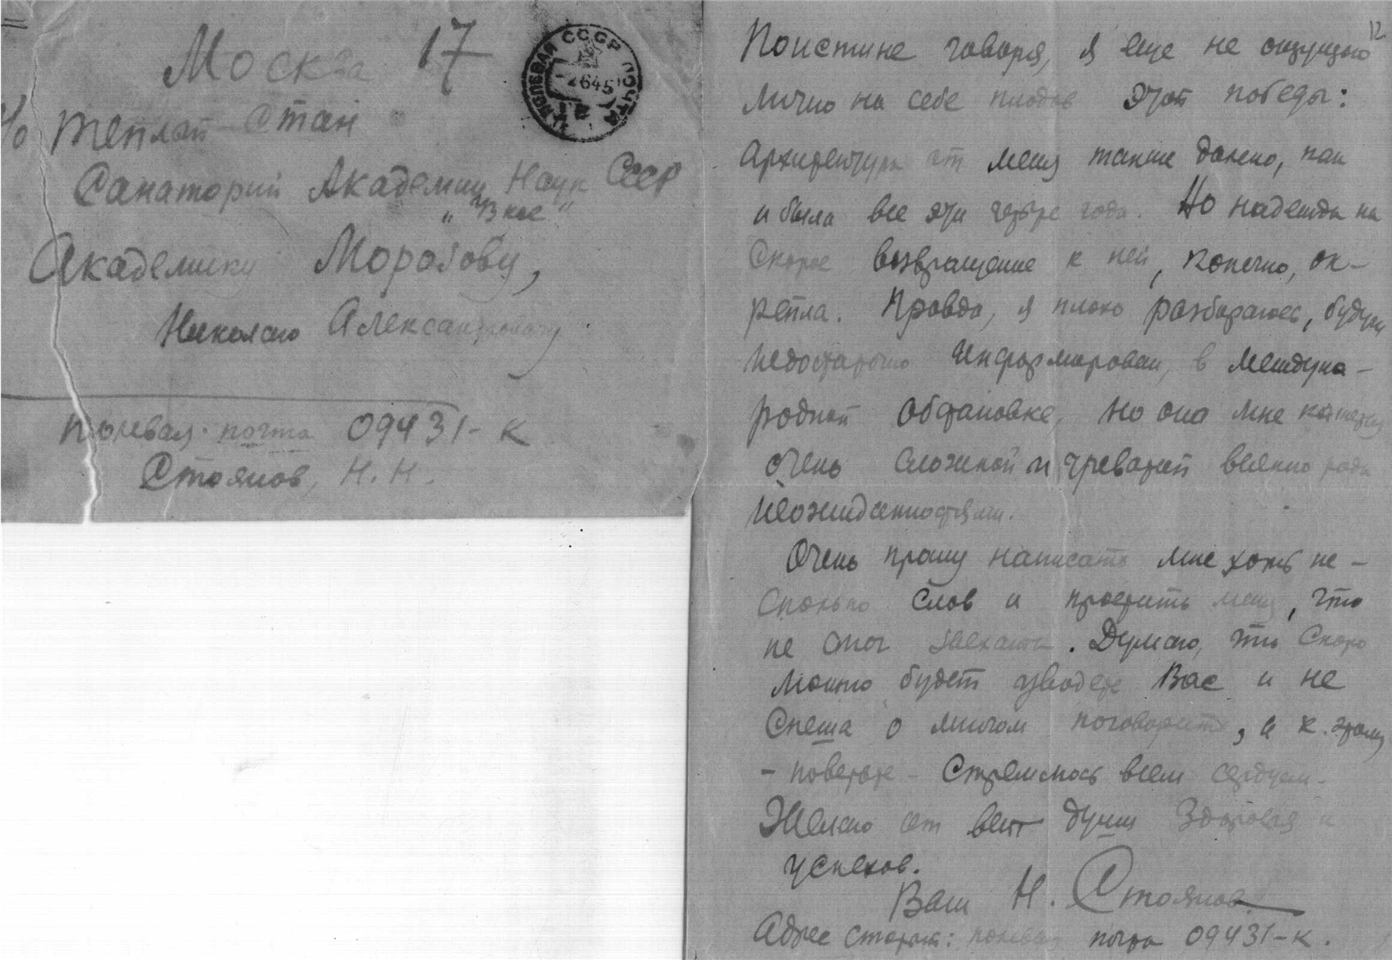 Москва 17
Теплый Стан
Санаторий Академии Наук СССР
"Узкое"
Академику Морозову,
Николаю Александровичу
Полевая почта 09431-К
Стоянов, Н. Н.
ПОЛЕВАЯ ПОЧТА СССР
2 6 45
12
Поистине говоря, я еще не ощущаю
лично на себе плодов этой победы:
архитектура от меня также далеко, как
и была все эти четыре года. Но надежда на
скорое возвращение к ней, конечно, ок-
репла. Правда, я плохо разбираюсь, будучи
недостаточно информирован, в междуна-
родной обстановке, но она мне кажется
очень сложной и чреватой всякого рода
неожиданностями.
Очень прошу написать мне хоть не-
сколько слов и простить меня, что
не смог заехать. Думаю, что скоро
можно будет увидеть Вас и не
спеша о многом поговорить, а к этому
- поверьте - стремлюсь всем сердцем.
Желаю от всей души здоровья и
успехов.
Ваш Н. Стоянов
Адрес старый: полевая почта 09431-К.